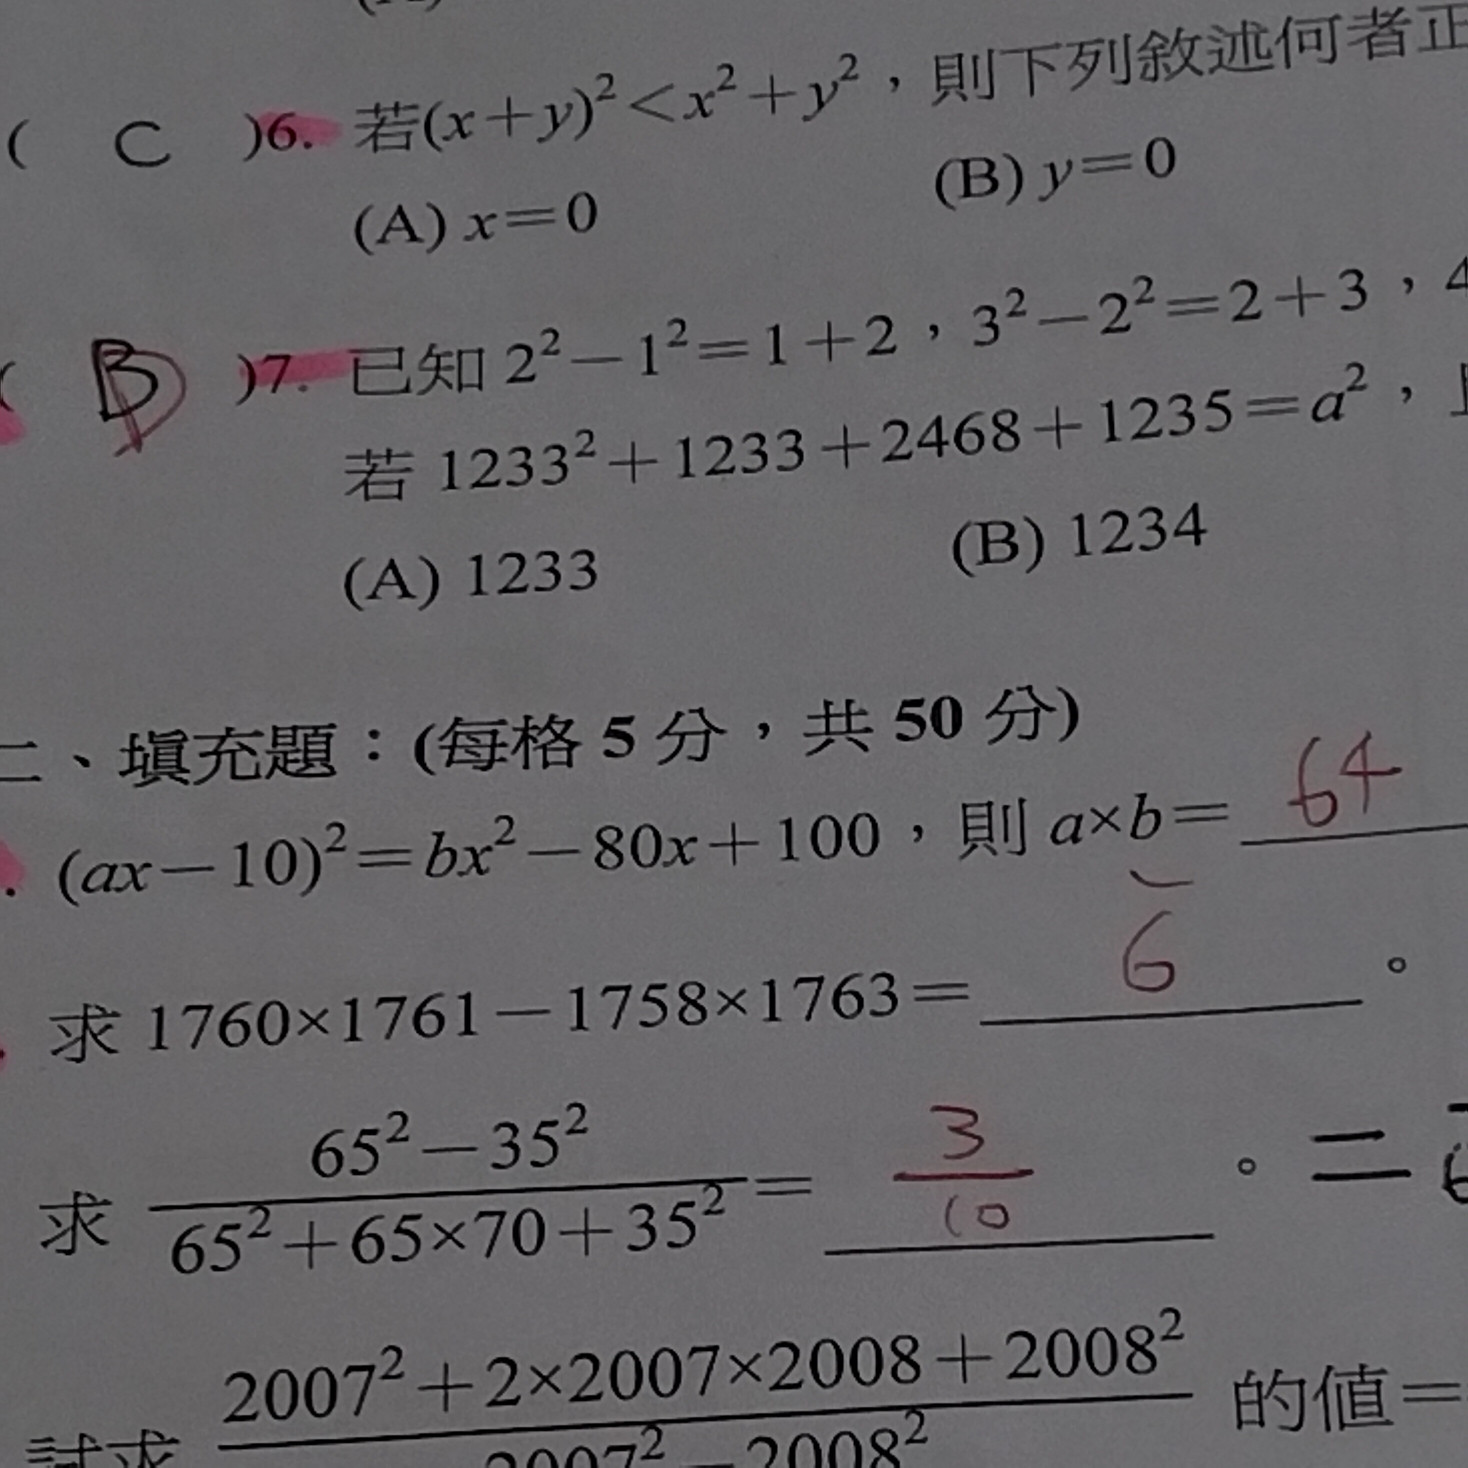 ( C )6. 若(x+y)²<x²+y²，則下列敘述何者正
(A) x=0 (B) y=0
( B )7. 已知 2²-1²=1+2，3²-2²=2+3，4
若 1233²+1233+2468+1235=a²，
(A) 1233 (B) 1234
二、填充題：(每格 5 分，共 50 分)
. (ax-10)²=bx²-80x+100，則 a×b= 64
求 1760×1761-1758×1763= 6 。
求 (65²-35²)/(65²+65×70+35²)= 3/10 。=
試求 (2007²+2×2007×2008+2008²)/(2007²-2008²) 的值=